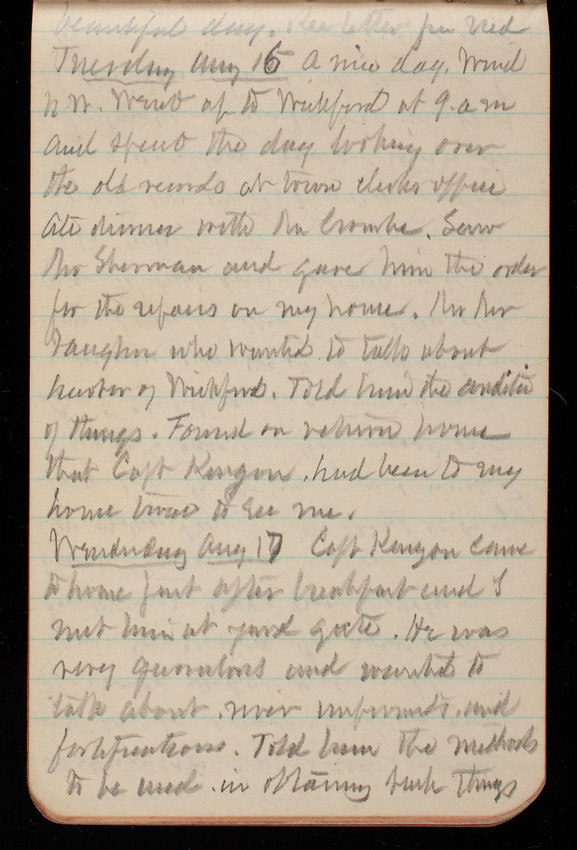 beautiful day. Rec letter fr Ned
Tuesday Aug 16 A nice day, Wind
N.W. Went up to Wickford at 9. a m
and spent the day looking over
the old records at town clerks office
Ate dinner with Mr Crombe. Saw
Mr Sherman and gave him the order
for the repairs on my house. Mr
Vaughn who wanted to talk about
harbor of Wickford. Told him the condition
of things. Found on return home
that Capt Kenyon had been to my
house twice to see me.
Wednesday Aug 17 Capt Kenyon came
to house just after breakfast and I
met him at yard gate. He was
very garrulous and wanted to
talk about river improvmts and
fortifications. Told him the methods
to be used in obtaining such things